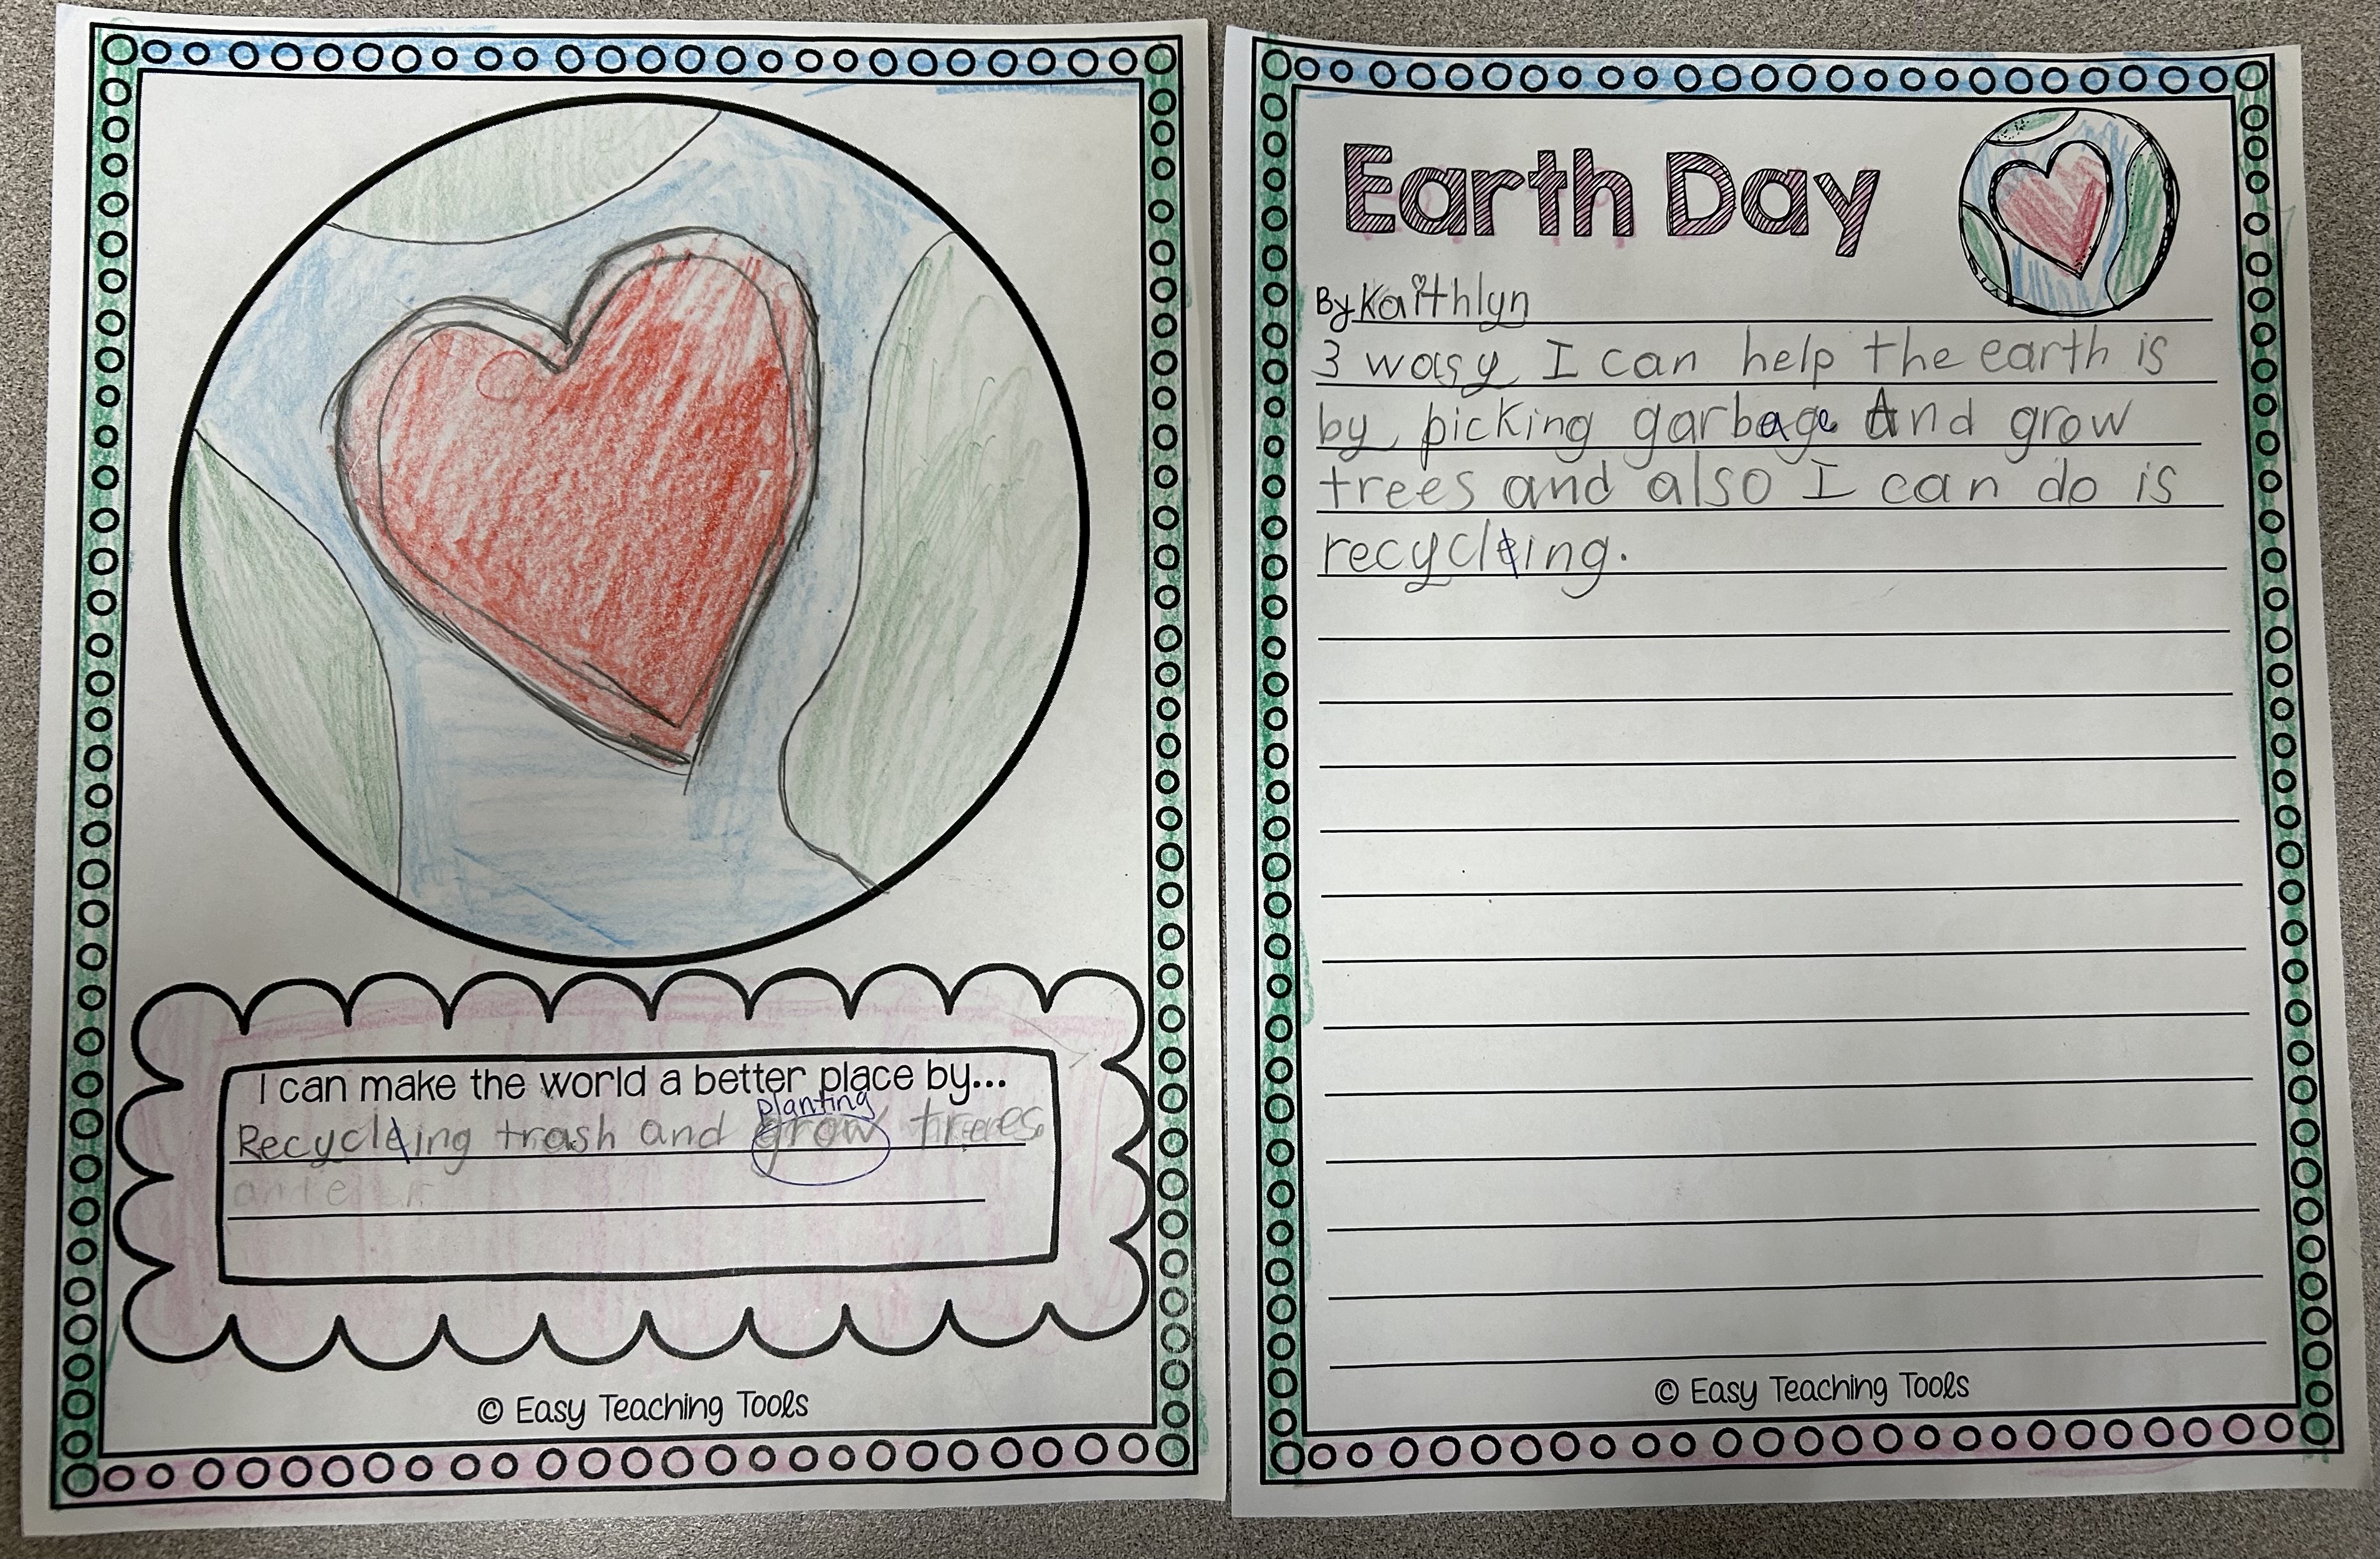 I can make the world a better place by...
planting
Recycleing trash and grow trees.
© Easy Teaching Tools
Earth Day
By Kaithlyn
3 wasy I can help the earth is
by picking garbage And grow
trees and also I can do is
recycleing.
© Easy Teaching Tools